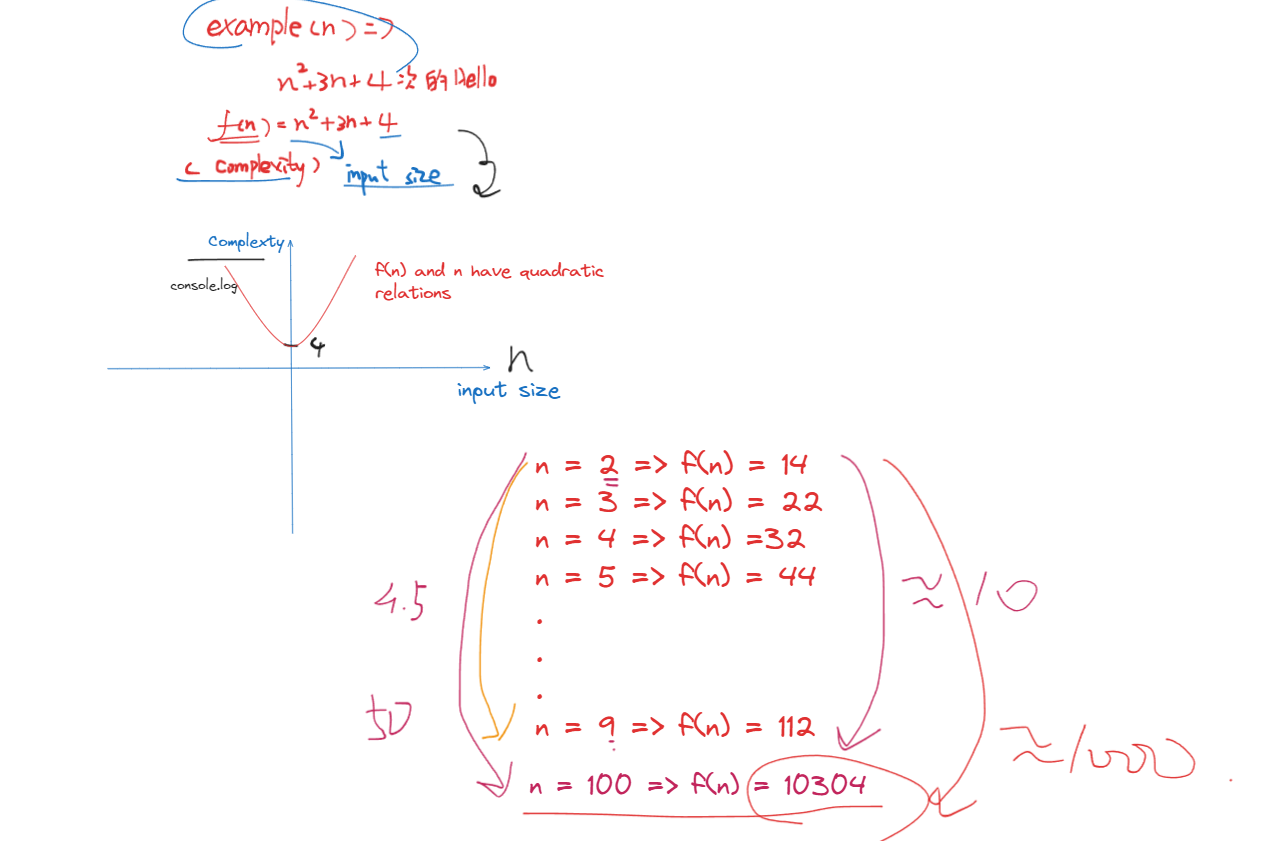 example(n) =>
n²+3n+4次的Hello
f(n) = n²+3n+4
( Complexity )
input size
Complexty
console.log
f(n) and n have quadratic
relations
4
n
input size
n = 2 => f(n) = 14
n = 3 => f(n) = 22
n = 4 => f(n) =32
n = 5 => f(n) = 44
4.5
≈ 10
.
.
.
50
n = 9 => f(n) = 112
≈
n = 100 => f(n) = 10304